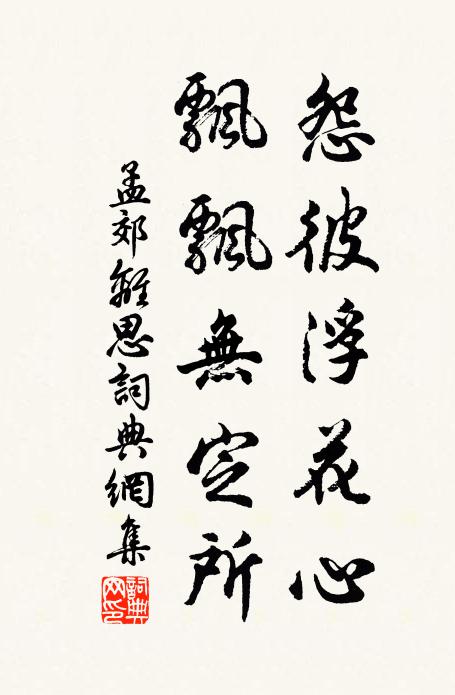 怨彼浮花心
飄飄無定所
孟郊離思詞典網集
詞典網印